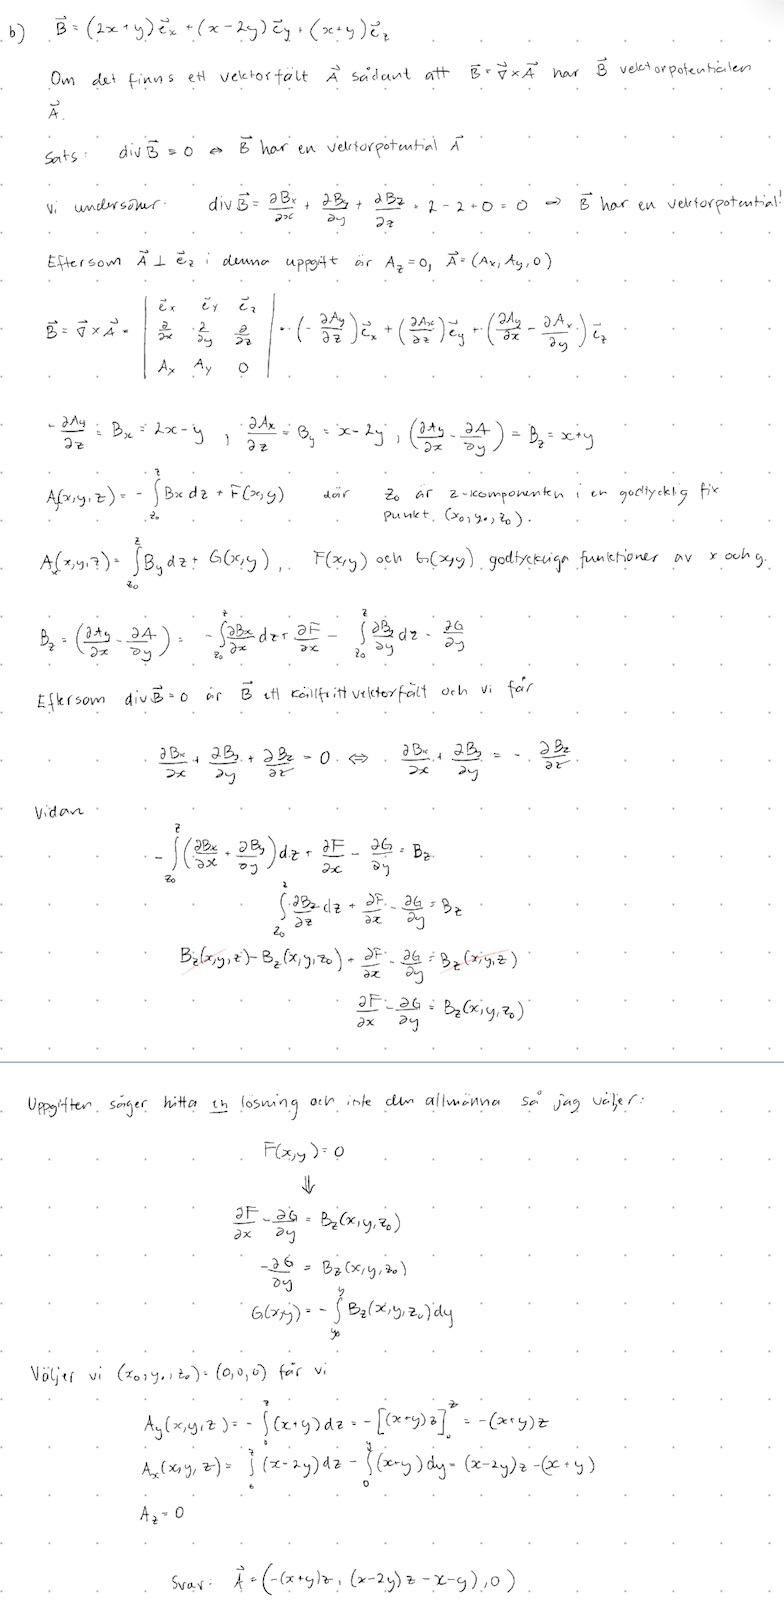 b) B⃗ = (2x+y)e⃗x + (x-2y)e⃗y + (x+y)e⃗z
Om det finns ett vektorfält A⃗ sådant att B⃗ = ∇⃗×A⃗ har B⃗ vektorpotentialen
A⃗.
Sats: div B⃗ = 0 ⇔ B⃗ har en vektorpotential A⃗
Vi undersöker: div B⃗ = ∂Bx/∂x + ∂By/∂y + ∂Bz/∂z = 2-2+0 = 0 ⇒ B⃗ har en vektorpotential!
Eftersom A⃗ ⊥ e⃗z i denna uppgift är Az=0, A⃗=(Ax, Ay, 0)
B⃗ = ∇⃗×A⃗ = | e⃗x e⃗y e⃗z ; ∂/∂x ∂/∂y ∂/∂z ; Ax Ay 0 | = (-∂Ay/∂z)e⃗x + (∂Ax/∂z)e⃗y + (∂Ay/∂x - ∂Ax/∂y)e⃗z
-∂Ay/∂z = Bx = 2x-y, ∂Ax/∂z = By = x-2y, (∂Ay/∂x - ∂A/∂y) = Bz = x+y
Ay(x,y,z) = -∫_{z0}^{z} Bx dz + F(x,y) där z0 är z-komponenten i en godtycklig fix
punkt (x0, y0, z0).
Ax(x,y,z) = ∫_{z0}^{z} By dz + G(x,y), F(x,y) och G(x,y) godtyckliga funktioner av x och y.
Bz = (∂Ay/∂x - ∂A/∂y) = -∫_{z0}^{z} ∂Bx/∂x dz + ∂F/∂x - ∫_{z0}^{z} ∂By/∂y dz - ∂G/∂y
Eftersom div B⃗ = 0 är B⃗ ett källfritt vektorfält och vi får
∂Bx/∂x + ∂By/∂y + ∂Bz/∂z = 0 ⇔ ∂Bx/∂x + ∂By/∂y = -∂Bz/∂z
Vidare
-∫_{z0}^{z} (∂Bx/∂x + ∂By/∂y) dz + ∂F/∂x - ∂G/∂y = Bz
∫_{z0}^{z} ∂Bz/∂z dz + ∂F/∂x - ∂G/∂y = Bz
Bz(x,y,z) - Bz(x,y,z0) + ∂F/∂x - ∂G/∂y = Bz(x,y,z)
∂F/∂x - ∂G/∂y = Bz(x,y,z0)
Uppgiften säger hitta en lösning och inte den allmänna så jag väljer:
F(x,y) = 0
⇓
∂F/∂x - ∂G/∂y = Bz(x,y,z0)
-∂G/∂y = Bz(x,y,z0)
G(x,y) = -∫_{y0}^{y} Bz(x,y,z0) dy
Väljer vi (x0, y0, z0) = (0,0,0) får vi
Ay(x,y,z) = -∫_{0}^{z} (x+y) dz = -[(x+y)z]_{0}^{z} = -(x+y)z
Ax(x,y,z) = ∫_{0}^{z} (x-2y) dz - ∫_{0}^{y} (x+y) dy = (x-2y)z - (x+y)
Az = 0
Svar: A⃗ = (-(x+y)z, (x-2y)z-x-y), 0)